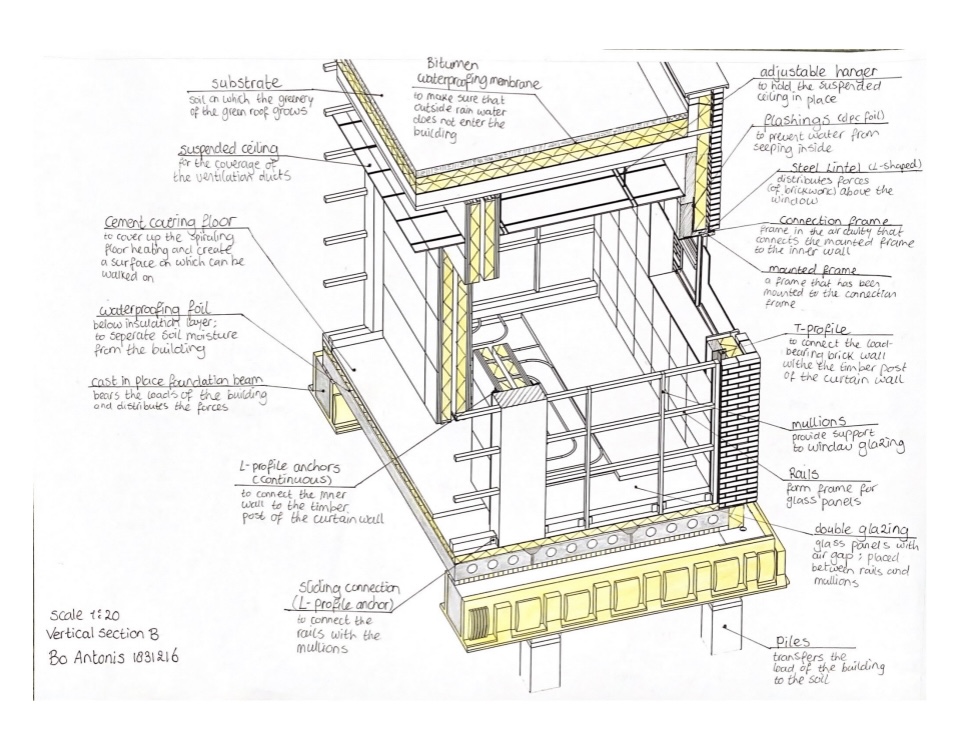 substrate
soil on which the greenery
of the green roof grows
suspended ceiling
for the coverage of
the ventilation ducts
Cement covering floor
to cover up the spiraling
floor heating and create
a surface on which can be
walked on
waterproofing foil
below insulation layer;
to seperate soil moisture
from the building
cast in place foundation beam
bears the loads of the building
and distributes the forces
L-profile anchors
(continuous)
to connect the inner
wall to the timber
post of the curtain wall
Sliding connection
(L-profile anchor)
to connect the
rails with the
mullions
Scale 1:20
Vertical section B
Bo Antonis 1831216
Bitumen
waterproofing membrane
to make sure that
outside rain water
does not enter the
building
adjustable hanger
to hold the suspended
ceiling in place
flashings (dpc foil)
to prevent water from
seeping inside
Steel Lintel (L-shaped)
distributes forces
(of brickwork) above the
window
Connection frame
frame in the air cavity that
connects the mounted frame
to the inner wall
mounted frame
a frame that has been
mounted to the connection
frame
T-profile
to connect the load-
bearing brick wall
withe the timber post
of the curtain wall
mullions
provide support
to window glazing
Rails
form frame for
glass panels
double glazing
glass panels with
air gap; placed
between rails and
mullions
Piles
transfers the
load of the building
to the soil